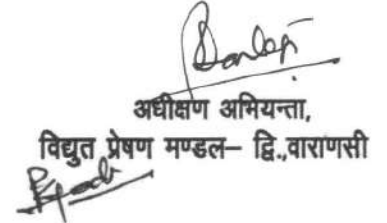 अधीक्षण अभियन्ता,
विद्युत प्रेषण मण्डल– द्वि.,वाराणसी